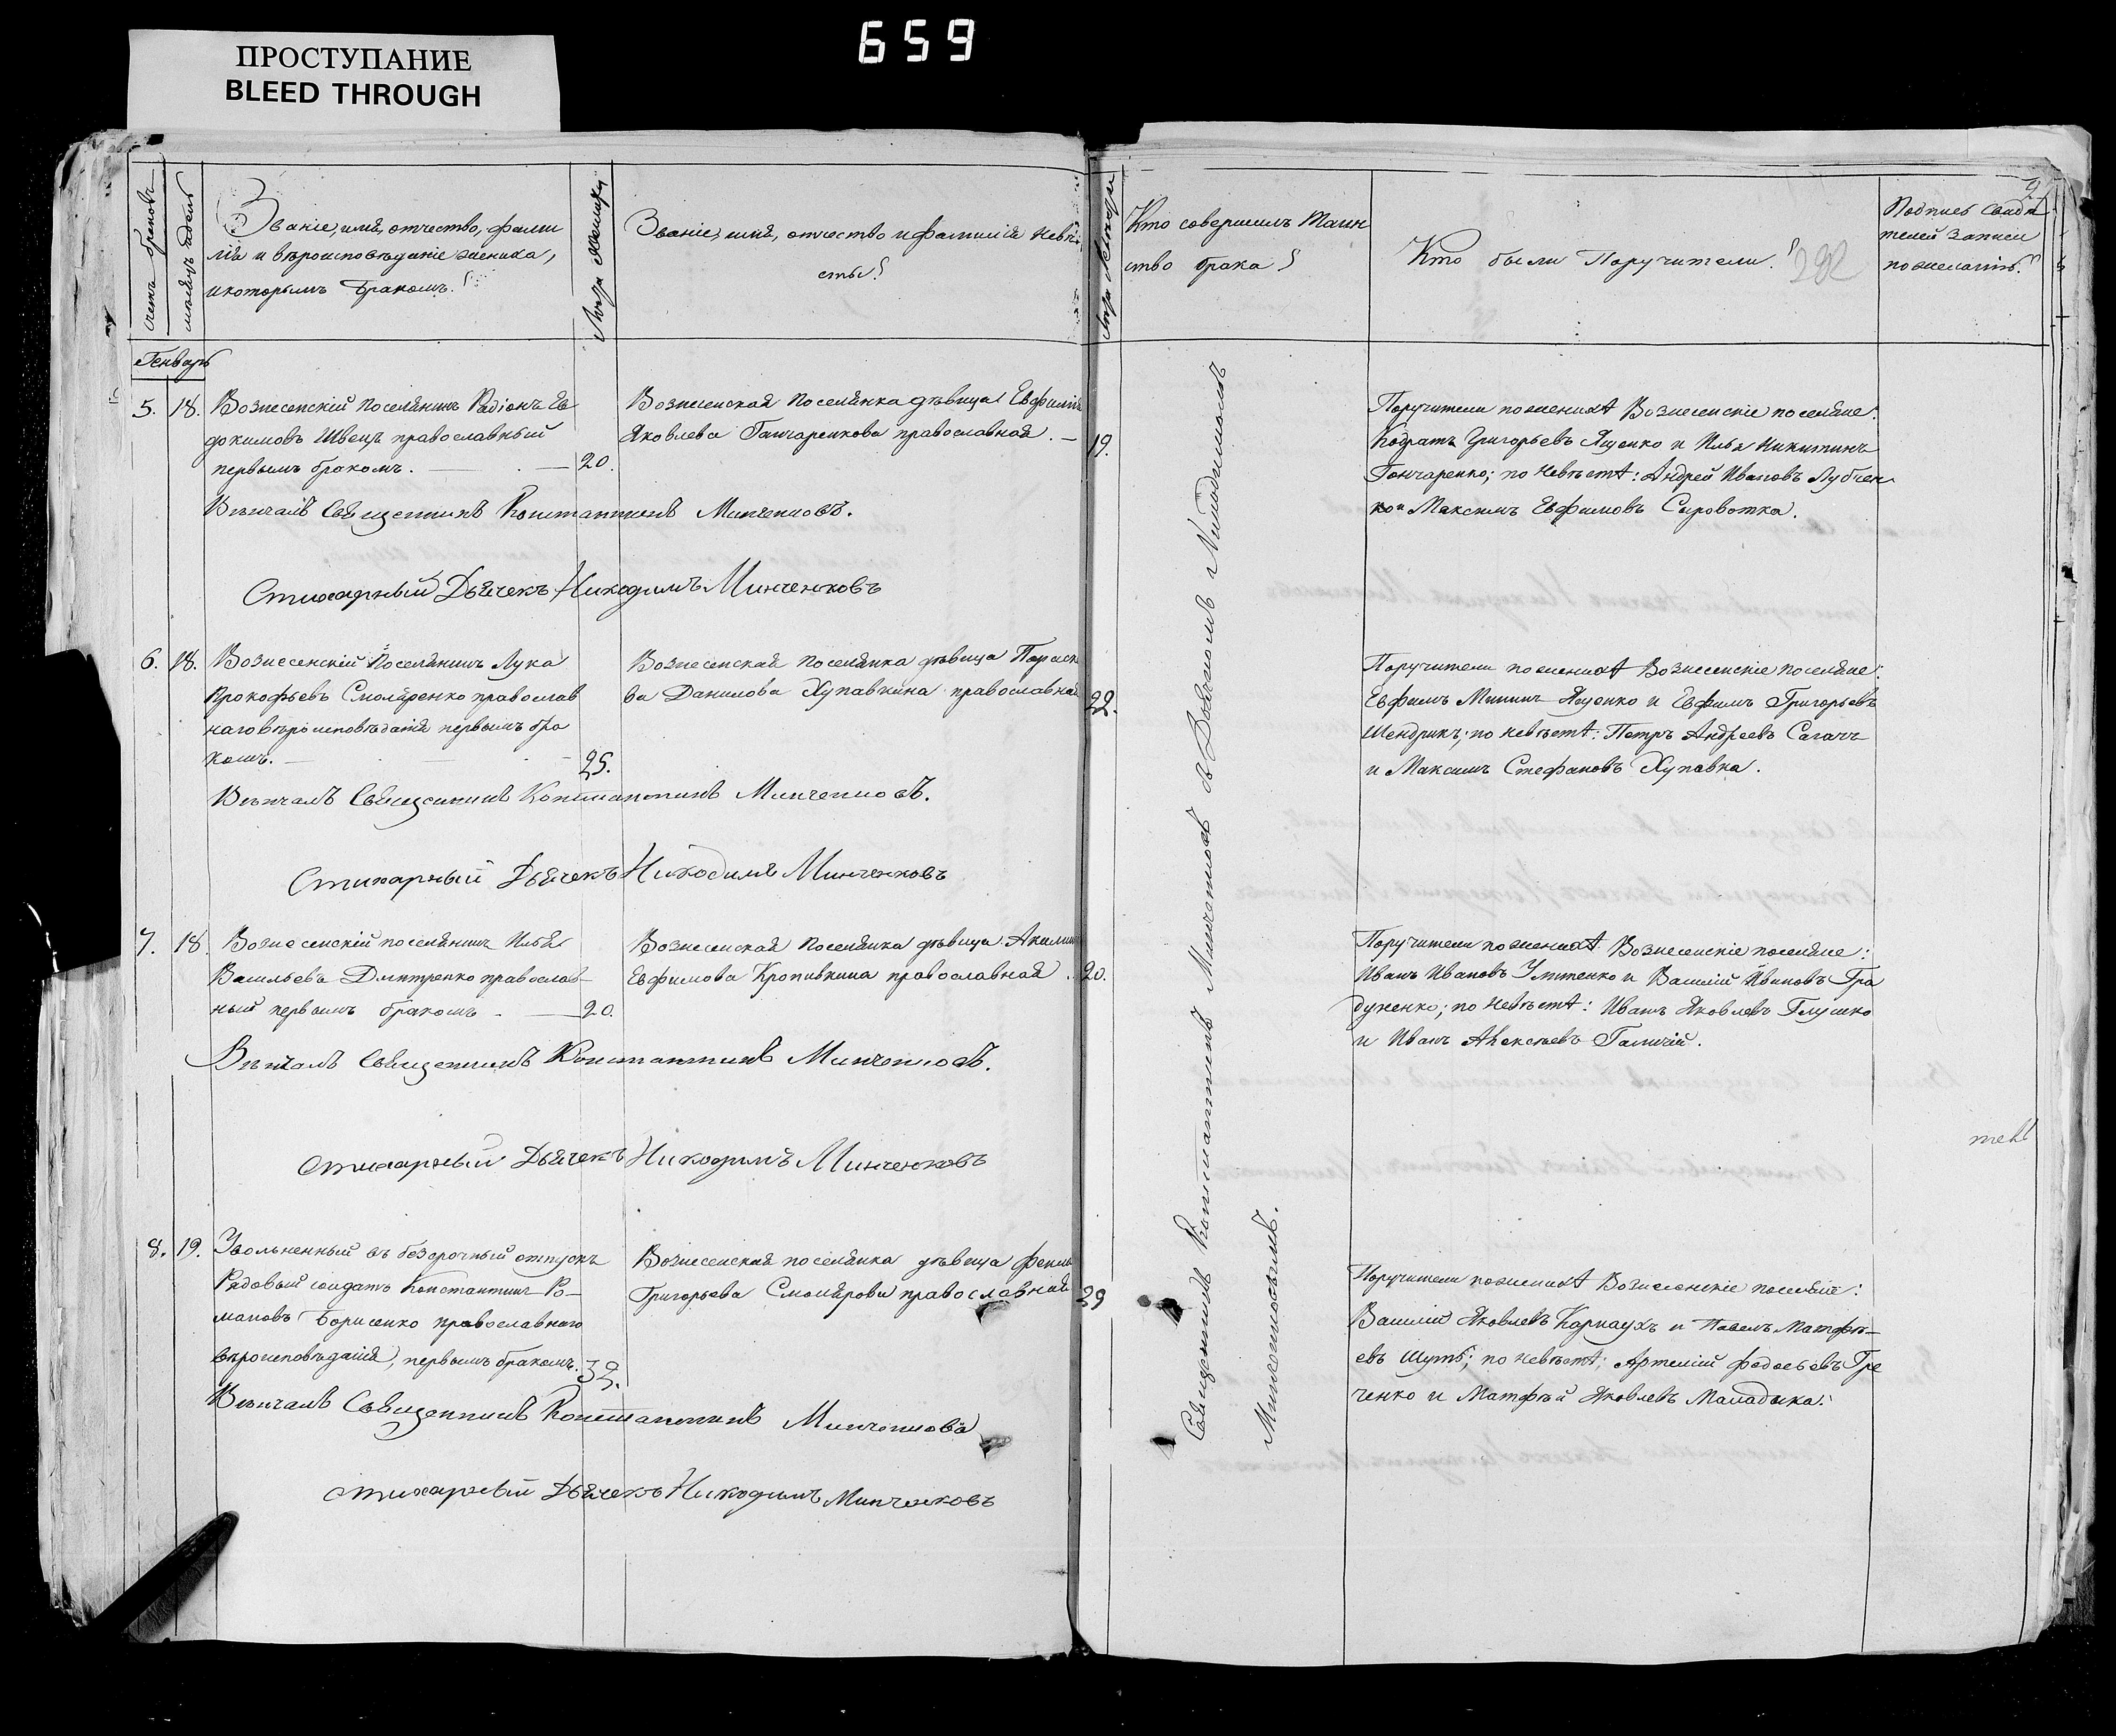 659
ПРОСТУПАНИЕ
BLEED THROUGH
Счетъ браковъ
Званіе, имя, отчество, фами
лія и вѣроисповѣданіе жениха,
и которымъ бракомъ.
Лѣта жениха
Званіе, имя, отчество и фамилія невѣ
сты.
Лѣта невѣсты
Кто совершилъ Таин
ство брака
Кто были Поручители.
292
Подпись свидѣ
телей записи
по желанію.
Генварь
5. 18. Вознесенскій поселянинъ Радіонъ Ев
докимовъ Швецъ православный
первымъ бракомъ. 20.
Вознесенская поселянка дѣвица Евфимія
Яковлева Ганчаренкова православная. 19.
Вѣнчалъ Священникъ Константинъ Минченковъ.
Стихарный Дьячекъ Никодимъ Минченковъ
Поручители по женихѣ Вознесенскіе поселяне:
Кодратъ Григорьевъ Яценко и Илья Никитинъ
Гончаренко; по невѣстѣ: Андрей Ивановъ Лубчен
ко и Максимъ Евфимовъ Сыровотка.
6. 18. Вознесенскій Поселянинъ Лука
Прокофьевъ Смоляренко православ
наго вѣроисповѣданія первымъ бра
комъ. 25.
Вознесенская поселянка дѣвица Параске
ва Данилова Хупавкина православная 22.
Вѣнчалъ Священникъ Константинъ Минченковъ.
Стихарный Дьячекъ Никодимъ Минченковъ
Поручители по женихѣ Вознесенскіе поселяне:
Евфимъ Мининъ Яценко и Евфимъ Григорьевъ
Шендрикъ; по невѣстѣ: Петръ Андреевъ Сагачъ
и Максимъ Стефановъ Хупавка.
7. 18 Вознесенскій поселянинъ Илья
Васильевъ Дмитренко православ-
ный первымъ бракомъ 20.
Вознесенская поселянка дѣвица Акилин
Евфимова Кропивкина православная. 20.
Вѣнчалъ Священникъ Константинъ Минченковъ.
Стихарный Дьячекъ Никодимъ Минченковъ
Поручители по женихѣ Вознесенскіе поселяне:
Иванъ Ивановъ и Василій Ивановъ Гра
дуненко; по невѣстѣ: Иванъ Яковлевъ Глушко
и Иванъ Алексѣевъ Галичій.
8. 19. Увольненный въ безсрочный отпускъ
Рядовый солдатъ Константинъ Ро-
мановъ Борисенко православнаго
вѣроисповѣданія, первымъ бракомъ. 32.
Вознесенская поселянка дѣвица
Григорьева Смолярова православная 29
Вѣнчалъ Священникъ Константинъ Минченковъ
Стихарный Дьячекъ Никодимъ Минченковъ
Поручители по женихѣ Вознесенскіе поселяне:
Василій Яковлевъ Карнаухъ и Павелъ Матфѣ-
евъ Шуть; по невѣстѣ: Артемій Федосѣевъ Гре
ченко и Матфѣй Яковлевъ Маладыка.
Священникъ Константинъ Минченковъ съ Дьячкомъ Никодимомъ
Минченковымъ.